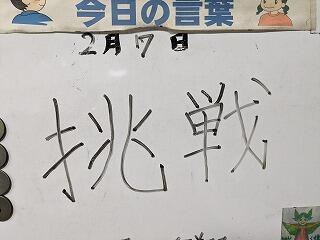 今日の言葉
2月7日
挑戦